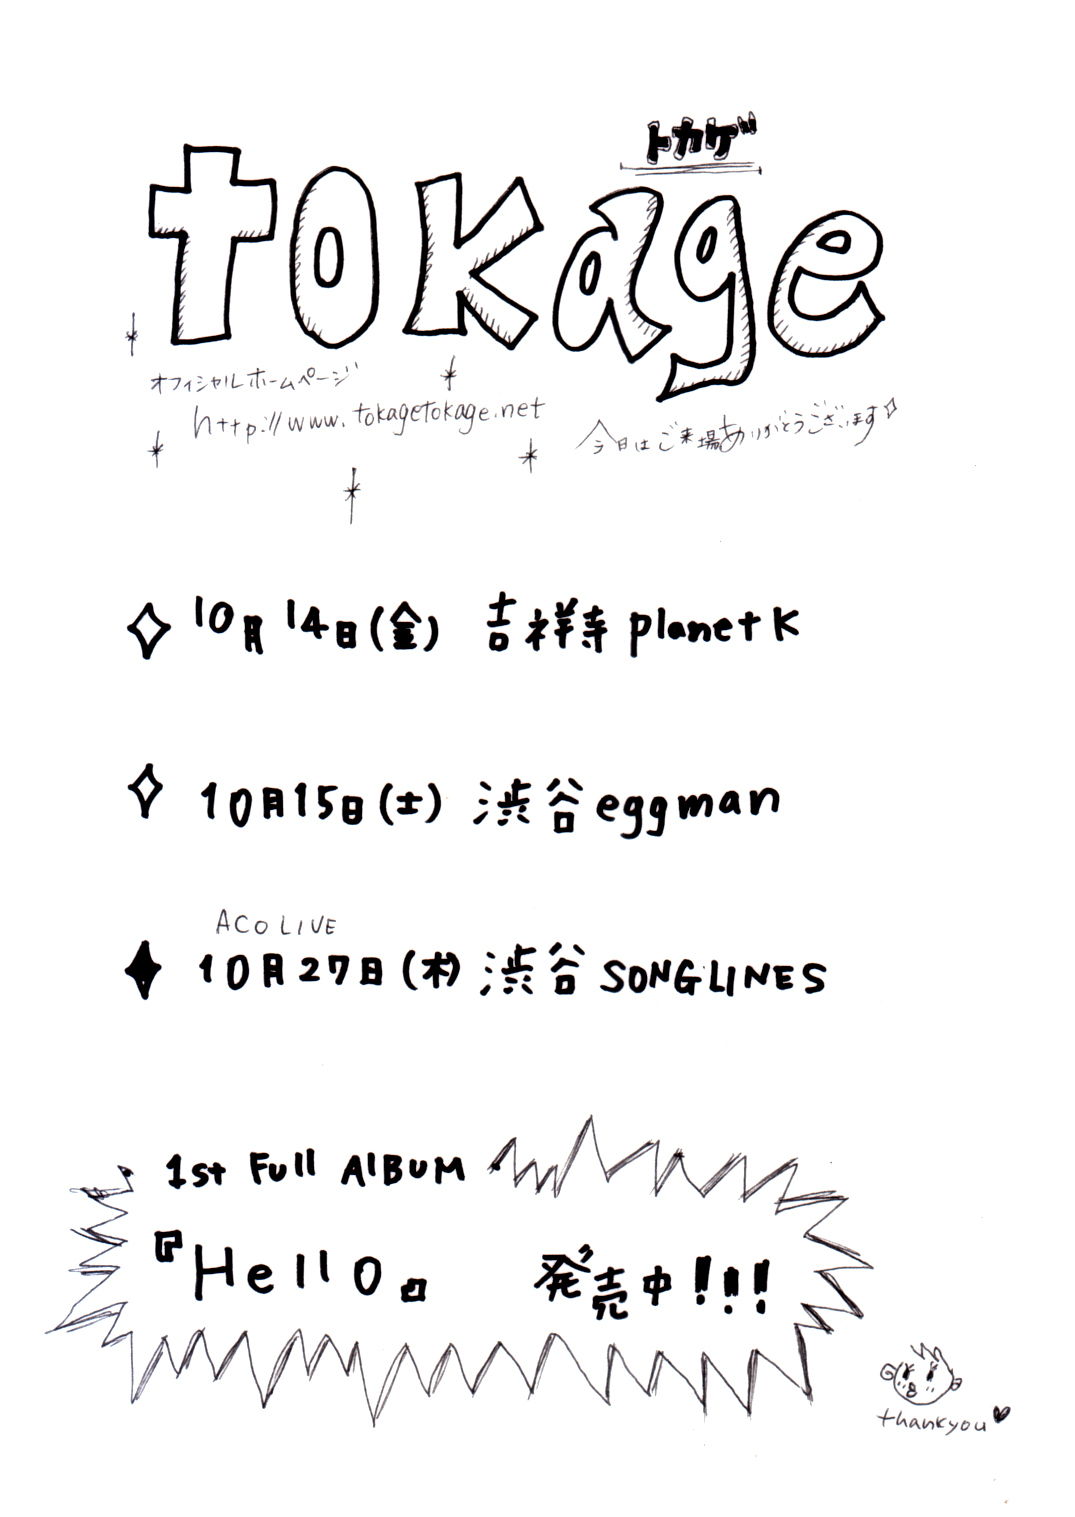 トカゲ
tokage
オフィシャルホームページ
http://www.tokagetokage.net
今日はご来場ありがとうございます
10月14日(金) 吉祥寺 planet K
10月15日(土) 渋谷 eggman
ACO LIVE
10月27日(木) 渋谷 SONGLINES
1st Full AlBUM
『Hello』 発売中!!!
thankyou